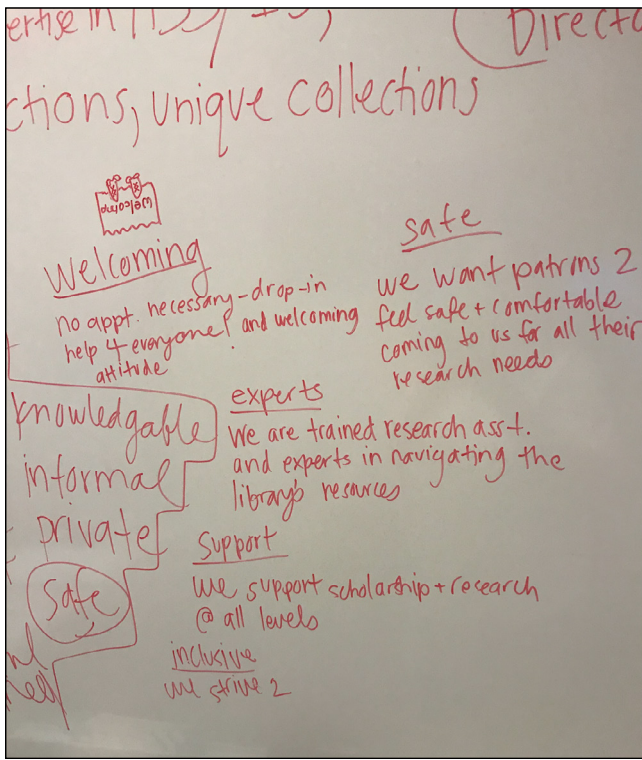 ertise in
Directo
ctions, unique collections
welcoming
Welcoming
no appt. necessary - drop-in
help 4 everyone! and welcoming
attitude
safe
we want patrons 2
feel safe + comfortable
coming to us for all their
research needs
knowledgable
informal
private
safe
experts
We are trained research asst.
and experts in navigating the
library's resources
support
we support scholarship + research
@ all levels
inclusive
we strive 2